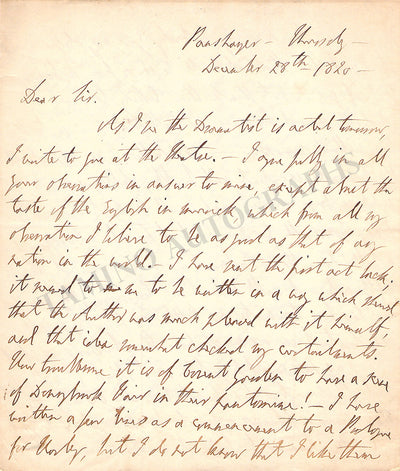 Panshanger – Thursday
December 28th 1820 –
Dear Sir.
As I see the Dramatist is acted tomorrow,
I write to you at the theatre. – I agree fully in all
your observations in answer to mine, except about the
taste of the English in musick, which from all my
observation I believe to be as good as that of any
nation in the world. I have sent the first act back;
it seemed to me to be written in a way which shewed
that the Author was much pleased with it himself,
and that idea somewhat checked my
How troublesome it is of Covent Garden to have a scene
of Donnybrook Fair in their pantomime! – I have
written a few lines as a commencement to a Prologue
for but I do not know that I like them
TAMINO AUTOGRAPHS